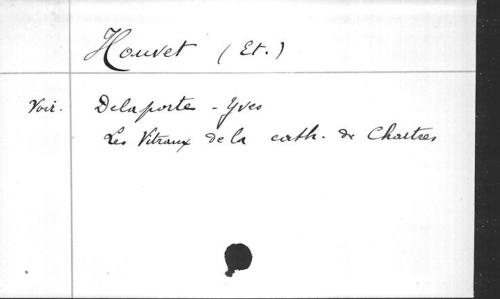 Houvet (Et.)
Voir. Delaporte - Yves
Les Vitraux de la cath. de Chartres